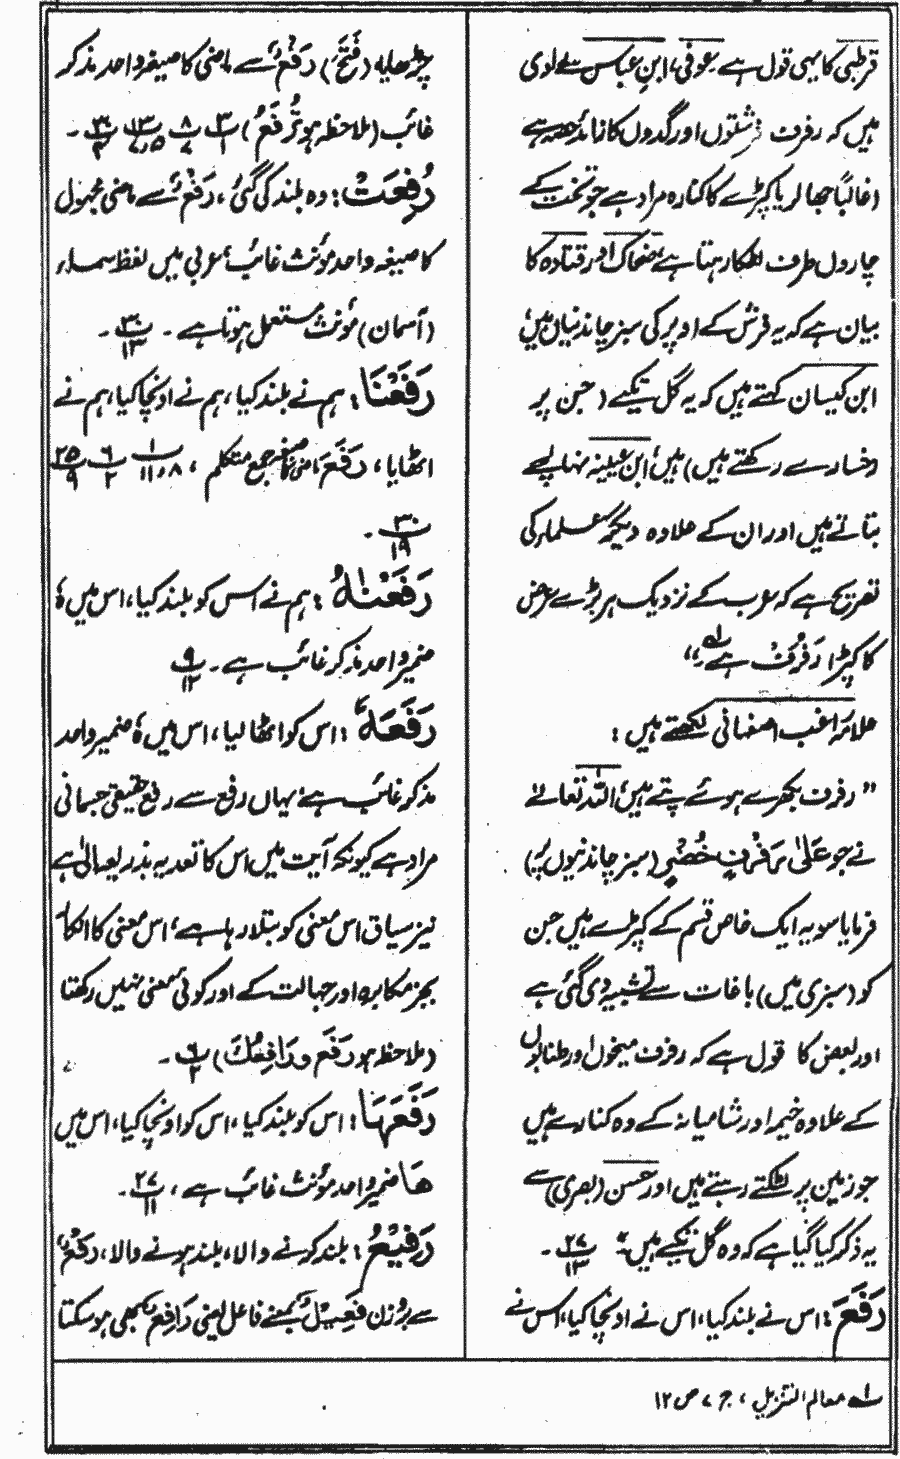 قرطبی کا یہی قول ہے عوفی، ابن عباس سے راوی
ہیں کہ رفرف فرشتوں اور گدوں کا زائد حصہ ہے
(غالبًا جھالر یا کپڑے کا کنارہ مراد ہے جو تخت کے
چاروں طرف لٹکا رہتا ہے) ضحاک اور قتادہ کا
بیان ہے کہ یہ فرش کے اوپر کی سبز چاندنیاں ہیں،
ابن کیسان کہتے ہیں کہ یہ گل تکیے (جن پر
رخسار سے رکھتے ہیں) ہیں، ابن عیینہ نہالچے
بتاتے ہیں اور ان کے علاوہ دیگر علماء کی
تصریح ہے کہ عرب کے نزدیک ہر بڑے عرض
کا کپڑا رَفْرَفْ ہے۔"
علامہ راغب اصفہانی لکھتے ہیں :
" رفرف بکھرے ہوئے پتے ہیں، اللہ تعالےٰ
نے جو عَلیٰ رَفْرَفٍ خُضْرٍ (سبز چاندنیوں پر)
فرمایا سو یہ ایک خاص قسم کے کپڑے ہیں جن
کو (سبزی میں) باغات سے تشبیہ دی گئی ہے
اور بعض کا قول ہے کہ رفرف میخوں اور طنابوں
کے علاوہ خیمہ اور شامیانہ کے وہ کنارے ہیں
جو زمین پر لٹکتے رہتے ہیں اور حسن (بصری) سے
یہ ذکر کیا گیا ہے کہ وہ گل تکیے ہیں۔" ۲۷/۱۳ ۔
رَفَعَ : اس نے بلند کیا، اس نے اونچا کیا، اس نے
چڑھایا، (فَتَحَ) رَفْعٌ سے ماضی کا صیغہ واحد مذکر
غائب (ملاحظہ ہو تُرْفَعُ) ۳/۱ ۸/۷ ۱۳/۷،۵ ۳۰/۳ ۔
رُفِعَتْ : وہ بلند کی گئی، رَفْعٌ سے ماضی مجہول
کا صیغہ واحد مؤنث غائب، عربی میں لفظ سماء
(آسمان) مؤنث مستعمل ہوتا ہے ۔ ۳۰/۱۳ ۔
رَفَعْنَا : ہم نے بلند کیا، ہم نے اونچا کیا، ہم نے
اٹھایا، رَفَعَ، ماضی کا صیغہ جمع متکلم ، ۱/۱۱،۸ ۶/۲ ۲۵/۹
۳۰/۱۹ ۔
رَفَعْنٰہُ : ہم نے اس کو بلند کیا، اس میں ہٗ
ضمیر واحد مذکر غائب ہے ۔ ۹/۱۲
رَفَعَہٗ : اس کو اٹھا لیا، اس میں ہٗ ضمیر واحد
مذکر غائب ہے، یہاں رفع سے رفع حقیقی جسمانی
مراد ہے کیونکہ آیت میں اس کا تعدیہ بذریعہ الیٰ ہے
نیز سیاق اس معنی کو بتلا رہا ہے، اس معنی کا انکار
بجز مکابرہ اور جہالت کے اور کوئی معنی نہیں رکھتا
(ملاحظہ ہو رَفَعَ و رَافِعُكَ) ۶/۲ ۔
رَفَعَهَا : اس کو بلند کیا، اس کو اونچا کیا، اس میں
ھَا ضمیر واحد مؤنث غائب ہے ، ۲۷/۱۱ ۔
رَفِیْعُ : بلند کرنے والا، بلند ہونے والا، رَفْعٌ
سے بروزن فَعِیْلٌ بمعنے فاعل یعنی رَافِعٌ بھی ہو سکتا
لہ معالم التنزیل ، ج ۷ ص ۱۲